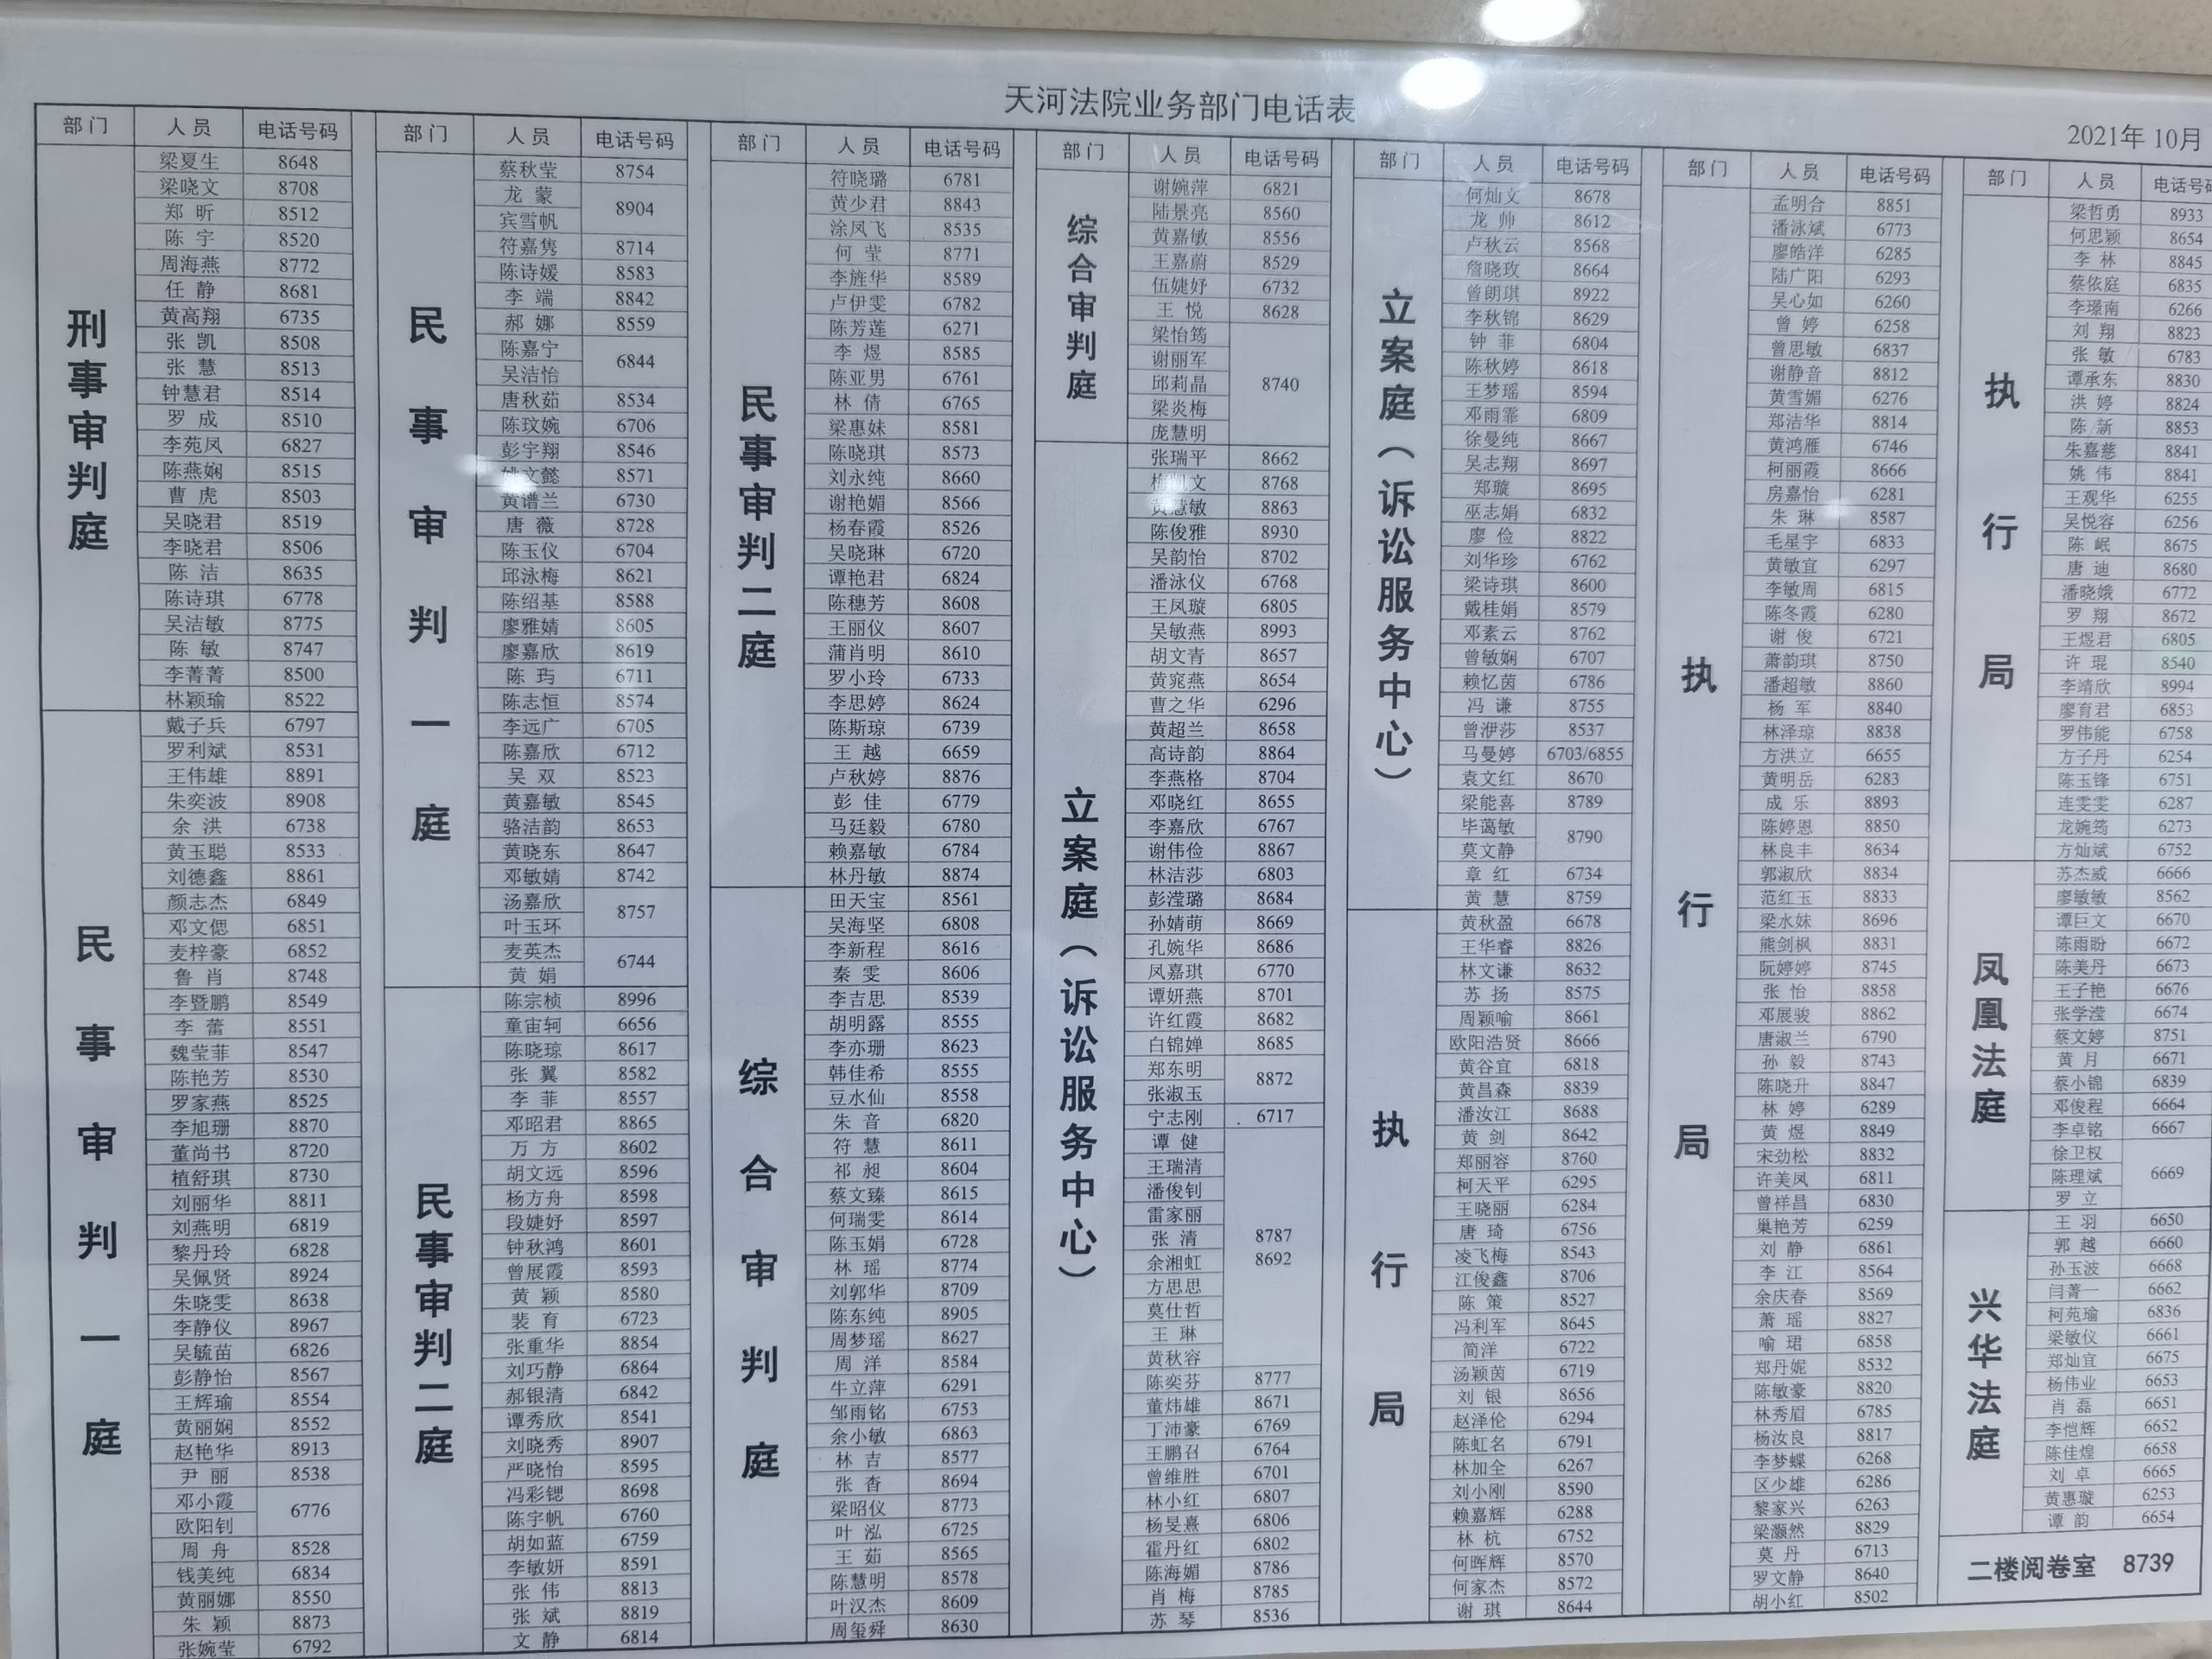 天河法院业务部门电话表
2021年 10月
部 门 人 员 电话号码
刑事审判庭
梁夏生 8648
梁晓文 8708
郑 昕 8512
陈 宇 8520
周海燕 8772
任 静 8681
黄高翔 6735
张 凯 8508
张 慧 8513
钟慧君 8514
罗 成 8510
李苑凤 6827
陈燕娴 8515
曹 虎 8503
吴晓君 8519
李晓君 8506
陈 洁 8635
陈诗琪 6778
吴洁敏 8775
陈 敏 8747
李菁菁 8500
林颖瑜 8522
民事审判一庭
戴子兵 6797
罗利斌 8531
王伟雄 8891
朱奕波 8908
余 洪 6738
黄玉聪 8533
刘德鑫 8861
颜志杰 6849
邓文偲 6851
麦梓豪 6852
鲁 肖 8748
李暨鹏 8549
李 蕾 8551
魏莹菲 8547
陈艳芳 8530
罗家燕 8525
李旭珊 8870
董尚书 8720
植舒琪 8730
刘丽华 8811
刘燕明 6819
黎丹玲 6828
吴佩贤 8924
朱晓雯 8638
李静仪 8967
吴毓苗 6826
彭静怡 8567
王辉瑜 8554
黄丽娴 8552
赵艳华 8913
尹 丽 8538
邓小霞
欧阳钊 6776
周 舟 8528
钱美纯 6834
黄丽娜 8550
朱 颖 8873
张婉莹 6792
部 门 人 员 电话号码
民事审判一庭
蔡秋莹 8754
龙 蒙
宾雪帆 8904
符嘉隽 8714
陈诗媛 8583
李 端 8842
郝 娜 8559
陈嘉宁
吴洁怡 6844
唐秋茹 8534
陈玟婉 6706
彭宇翔 8546
姚文懿 8571
黄谱兰 6730
唐 薇 8728
陈玉仪 6704
邱泳梅 8621
陈绍基 8588
廖雅婧 8605
廖嘉欣 8619
陈 玙 6711
陈志恒 8574
李远广 6705
陈嘉欣 6712
吴 双 8523
黄嘉敏 8545
骆洁韵 8653
黄晓东 8647
邓敏婧 8742
汤嘉欣
叶玉环 8757
麦英杰
黄 娟 6744
民事审判二庭
陈宗桢 8996
童宙轲 6656
陈晓琼 8617
张 翼 8582
李 菲 8557
邓昭君 8865
万 方 8602
胡文远 8596
杨方舟 8598
段婕妤 8597
钟秋鸿 8601
曾展霞 8593
黄 颖 8580
裴 育 6723
张重华 8854
刘巧静 6864
郝银清 6842
谭秀欣 8541
刘晓秀 8907
严晓怡 8595
冯彩锶 8698
陈宇帆 6760
胡如蓝 6759
李敏妍 8591
张 伟 8813
张 斌 8819
文 静 6814
部 门 人 员 电话号码
民事审判二庭
符晓璐 6781
黄少君 8843
涂凤飞 8535
何 莹 8771
李旌华 8589
卢伊雯 6782
陈芳莲 6271
李 煜 8585
陈亚男 6761
林 倩 6765
梁惠妹 8581
陈晓琪 8573
刘永纯 8660
谢艳媚 8566
杨春霞 8526
吴晓琳 6720
谭艳君 6824
陈穗芳 8608
王丽仪 8607
蒲肖明 8610
罗小玲 6733
李思婷 8624
陈斯琼 6739
王 越 6659
卢秋婷 8876
彭 佳 6779
马廷毅 6780
赖嘉敏 6784
林丹敏 8874
综合审判庭
田天宝 8561
吴海坚 6808
李新程 8616
秦 雯 8606
李吉思 8539
胡明露 8555
李亦珊 8623
韩佳希 8555
豆水仙 8558
朱 音 6820
符 慧 8611
祁 昶 8604
蔡文臻 8615
何瑞雯 8614
陈玉娟 6728
林 瑶 8774
刘郭华 8709
陈东纯 8905
周梦瑶 8627
周 洋 8584
牛立萍 6291
邹雨铭 6753
余小敏 6863
林 吉 8577
张 杳 8694
梁昭仪 8773
叶 泓 6725
王 茹 8565
陈慧明 8578
叶汉杰 8609
周玺舜 8630
部 门 人 员 电话号码
综合审判庭
谢婉萍 6821
陆景亮 8560
黄嘉敏 8556
王嘉蔚 8529
伍婕妤 6732
王 悦 8628
梁怡筠
谢丽军
邱莉晶 8740
梁炎梅
庞慧明
立案庭（诉讼服务中心）
张瑞平 8662
梅凯文 8768
黄慧敏 8863
陈俊雅 8930
吴韵怡 8702
潘泳仪 6768
王凤璇 6805
吴敏燕 8993
胡文青 8657
黄窕燕 8654
曹之华 6296
黄超兰 8658
高诗韵 8864
李燕格 8704
邓晓红 8655
李嘉欣 6767
谢伟俭 8867
林洁莎 6803
彭滢璐 8684
孙婧萌 8669
孔婉华 8686
凤嘉琪 6770
谭妍燕 8701
许红霞 8682
白锦婵 8685
郑东明
张淑玉 8872
宁志刚 6717
谭 健
王瑞清
潘俊钊
雷家丽
张 清 8787
余湘虹 8692
方思思
莫仕哲
王 琳
黄秋容
陈奕芬 8777
董炜雄 8671
丁沛豪 6769
王鹏召 6764
曾维胜 6701
林小红 6807
杨旻熹 6806
霍丹红 6802
陈海媚 8786
肖 梅 8785
苏 琴 8536
部 门 人 员 电话号码
立案庭（诉讼服务中心）
何灿文 8678
龙 帅 8612
卢秋云 8568
詹晓玫 8664
曾朗琪 8922
李秋锦 8629
钟 菲 6804
陈秋婷 8618
王梦瑶 8594
邓雨霏 6809
徐曼纯 8667
吴志翔 8697
郑璇 8695
巫志娟 6832
廖 俭 8822
刘华珍 6762
梁诗琪 8600
戴桂娟 8579
邓素云 8762
曾敏娴 6707
赖忆茵 6786
冯 谦 8755
曾洢莎 8537
马曼婷 6703/6855
袁文红 8670
梁能喜 8789
毕蔼敏
莫文静 8790
章 红 6734
黄 慧 8759
执行局
黄秋盈 6678
王华睿 8826
林文谦 8632
苏 扬 8575
周颖喻 8661
欧阳浩贤 8666
黄谷宜 6818
黄昌森 8839
潘汝江 8688
黄 剑 8642
郑丽容 8760
柯天平 6295
王晓丽 6284
唐 琦 6756
凌飞梅 8543
江俊鑫 8706
陈 策 8527
冯利军 8645
简洋 6722
汤颖茵 6719
刘 银 8656
赵泽伦 6294
陈虹名 6791
林加全 6267
刘小刚 8590
赖嘉辉 6288
林 杭 6752
何晖辉 8570
何家杰 8572
谢 琪 8644
部 门 人 员 电话号码
执行局
孟明合 8851
潘泳斌 6773
廖皓洋 6285
陆广阳 6293
吴心如 6260
曾 婷 6258
曾思敏 6837
谢静音 8812
黄雪媚 6276
郑洁华 8814
黄鸿雁 6746
柯丽霞 8666
房嘉怡 6281
朱 琳 8587
毛星宇 6833
黄敏宜 6297
李敏周 6815
陈冬霞 6280
谢 俊 6721
萧韵琪 8750
潘超敏 8860
杨 军 8840
林泽琼 8838
方洪立 6655
黄明岳 6283
成 乐 8893
陈婷恩 8850
林良丰 8634
郭淑欣 8834
范红玉 8833
梁水妹 8696
熊剑枫 8831
阮婷婷 8745
张 怡 8858
邓展骏 8862
唐淑兰 6790
孙 毅 8743
陈晓升 8847
林 婷 6289
黄 煜 8849
宋劲松 8832
许美凤 6811
曾祥昌 6830
巢艳芳 6259
刘 静 6861
李 江 8564
余庆春 8569
萧 瑶 8827
喻 珺 6858
郑丹妮 8532
陈敏豪 8820
林秀眉 6785
杨汝良 8817
李梦蝶 6268
区少雄 6286
黎家兴 6263
梁灏然 8829
莫 丹 6713
罗文静 8640
胡小红 8502
部 门 人 员 电话号码
执行局
梁哲勇 8933
何思颖 8654
李 林 8845
蔡依庭 6835
李璟南 6266
刘 翔 8823
张 敏 6783
谭承东 8830
洪 婷 8824
陈 新 8853
朱嘉慈 8841
姚 伟 8841
王观华 6255
吴悦容 6256
陈 岷 8675
唐 迪 8680
潘晓娥 6772
罗 翔 8672
王煜君 6805
许 琨 8540
李靖欣 8994
廖育君 6853
罗伟能 6758
方子丹 6254
陈玉锋 6751
连雯雯 6287
龙婉筠 6273
方灿斌 6752
凤凰法庭
苏杰威 6666
廖敏敏 8562
谭巨文 6670
陈雨盼 6672
陈美丹 6673
王子艳 6676
张学滢 6674
蔡文婷 8751
黄 月 6671
蔡小锦 6839
邓俊程 6664
李卓铭 6667
徐卫权
陈理斌 6669
罗 立
兴华法庭
王 羽 6650
郭 越 6660
孙玉波 6668
闫菁一 6662
柯苑瑜 6836
梁敏仪 6661
郑灿宜 6675
杨伟业 6653
肖 磊 6651
李恺辉 6652
陈佳煌 6658
刘 卓 6665
黄惠璇 6253
谭 韵 6654
二楼阅卷室 8739